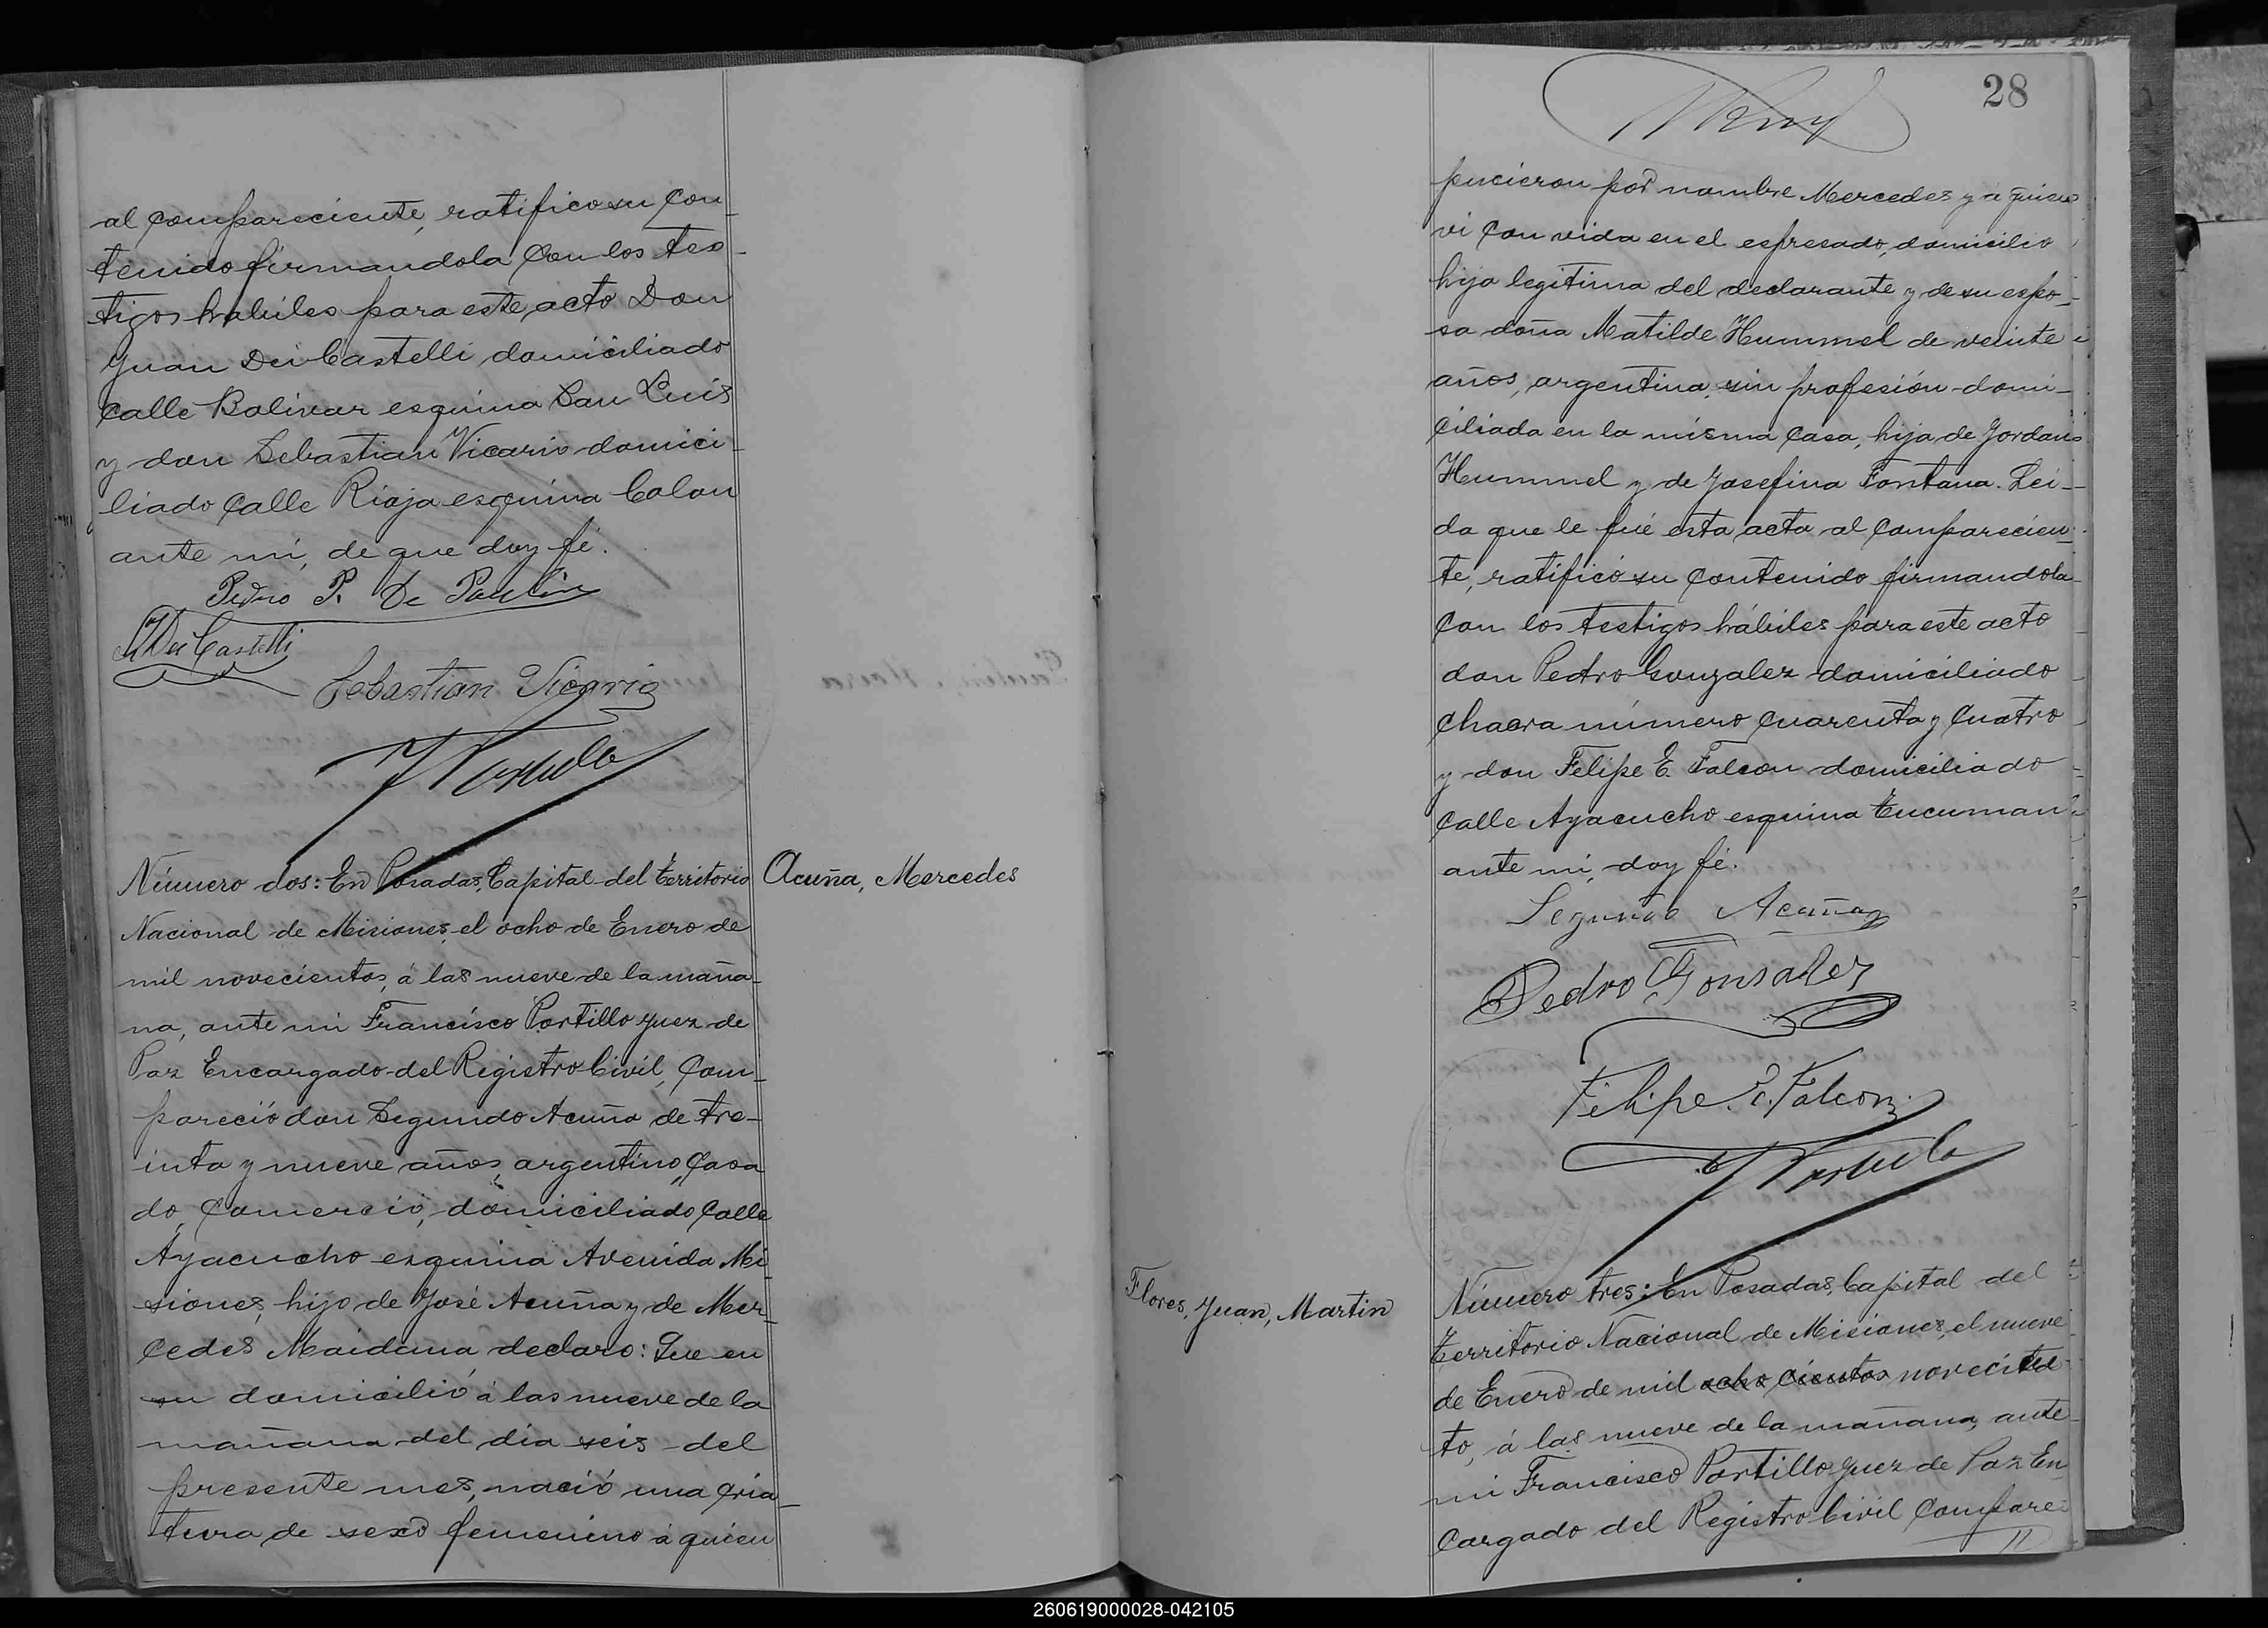 al compareciente, ratifico su con_
tenido firmandola con los tes_
tigos habiles para este acto Don
Juan Dei Castelli domiciliado
calle Bolivar esquina San Luis
y don Sebastian Vicario domici_
liado calle Rioja esquina Colon
ante mí, de que doy fé.
Pedro P. De
Dei Castelli
Sebastian Vicario
Número dos: En Posadas, Capital del Territorio
Acuña, Mercedes
Nacional de Misiones, el ocho de Enero de
mil novecientos, á las nueve de la maña_
na, ante mi Francisco Portillo Juez de
Paz Encargado del Registro Civil, Com_
pareció don Segundo Acuña de tre_
inta y nueve años, argentino, casa
do, comercio, domiciliado calle
Ayacucho esquina Avenida Mi
siones, hijo de José Acuña y de Mer_
cedes Maidana declaro: Que en
su domicilió á las nueve de la
mañana del dia seis del
presente mes, nació una cria_
tura de sexo femenino á quien
28
pucieron por nombre Mercedes y a quien
vi con vida en el espresado, domicilio
hija legitima del declarante y de su espo_
sa doña Matilde Hummel de veinte
años, argentina, sin profesión domi_
ciliada en la misma casa, hija de Jordan
Hummel y de Josefina Fontana. Lei_
da que le fué esta acta al comparecien_
te, ratificó su contenido firmandola
con los testigos hábiles para este acto
don Pedro Gonzalez domiciliado
chacra número cuarenta y cuatro
y don Felipe E. Falcon domiciliado
calle Ayacucho esquina Tucuman
ante mí, doy fé.
Segundo Acuña
Pedro Gonsalez
Felipe E. Falcon
Flores, Juan, Martin
Número tres: En Posadas, Capital del
Territorio Nacional de Misiones, el nueve
de Enero de mil ocho cientos
to, á las nueve de la mañana, ante
mi Francisco Portillo Juez de Paz En
cargado del Registro Civil compare
260619000028-042105